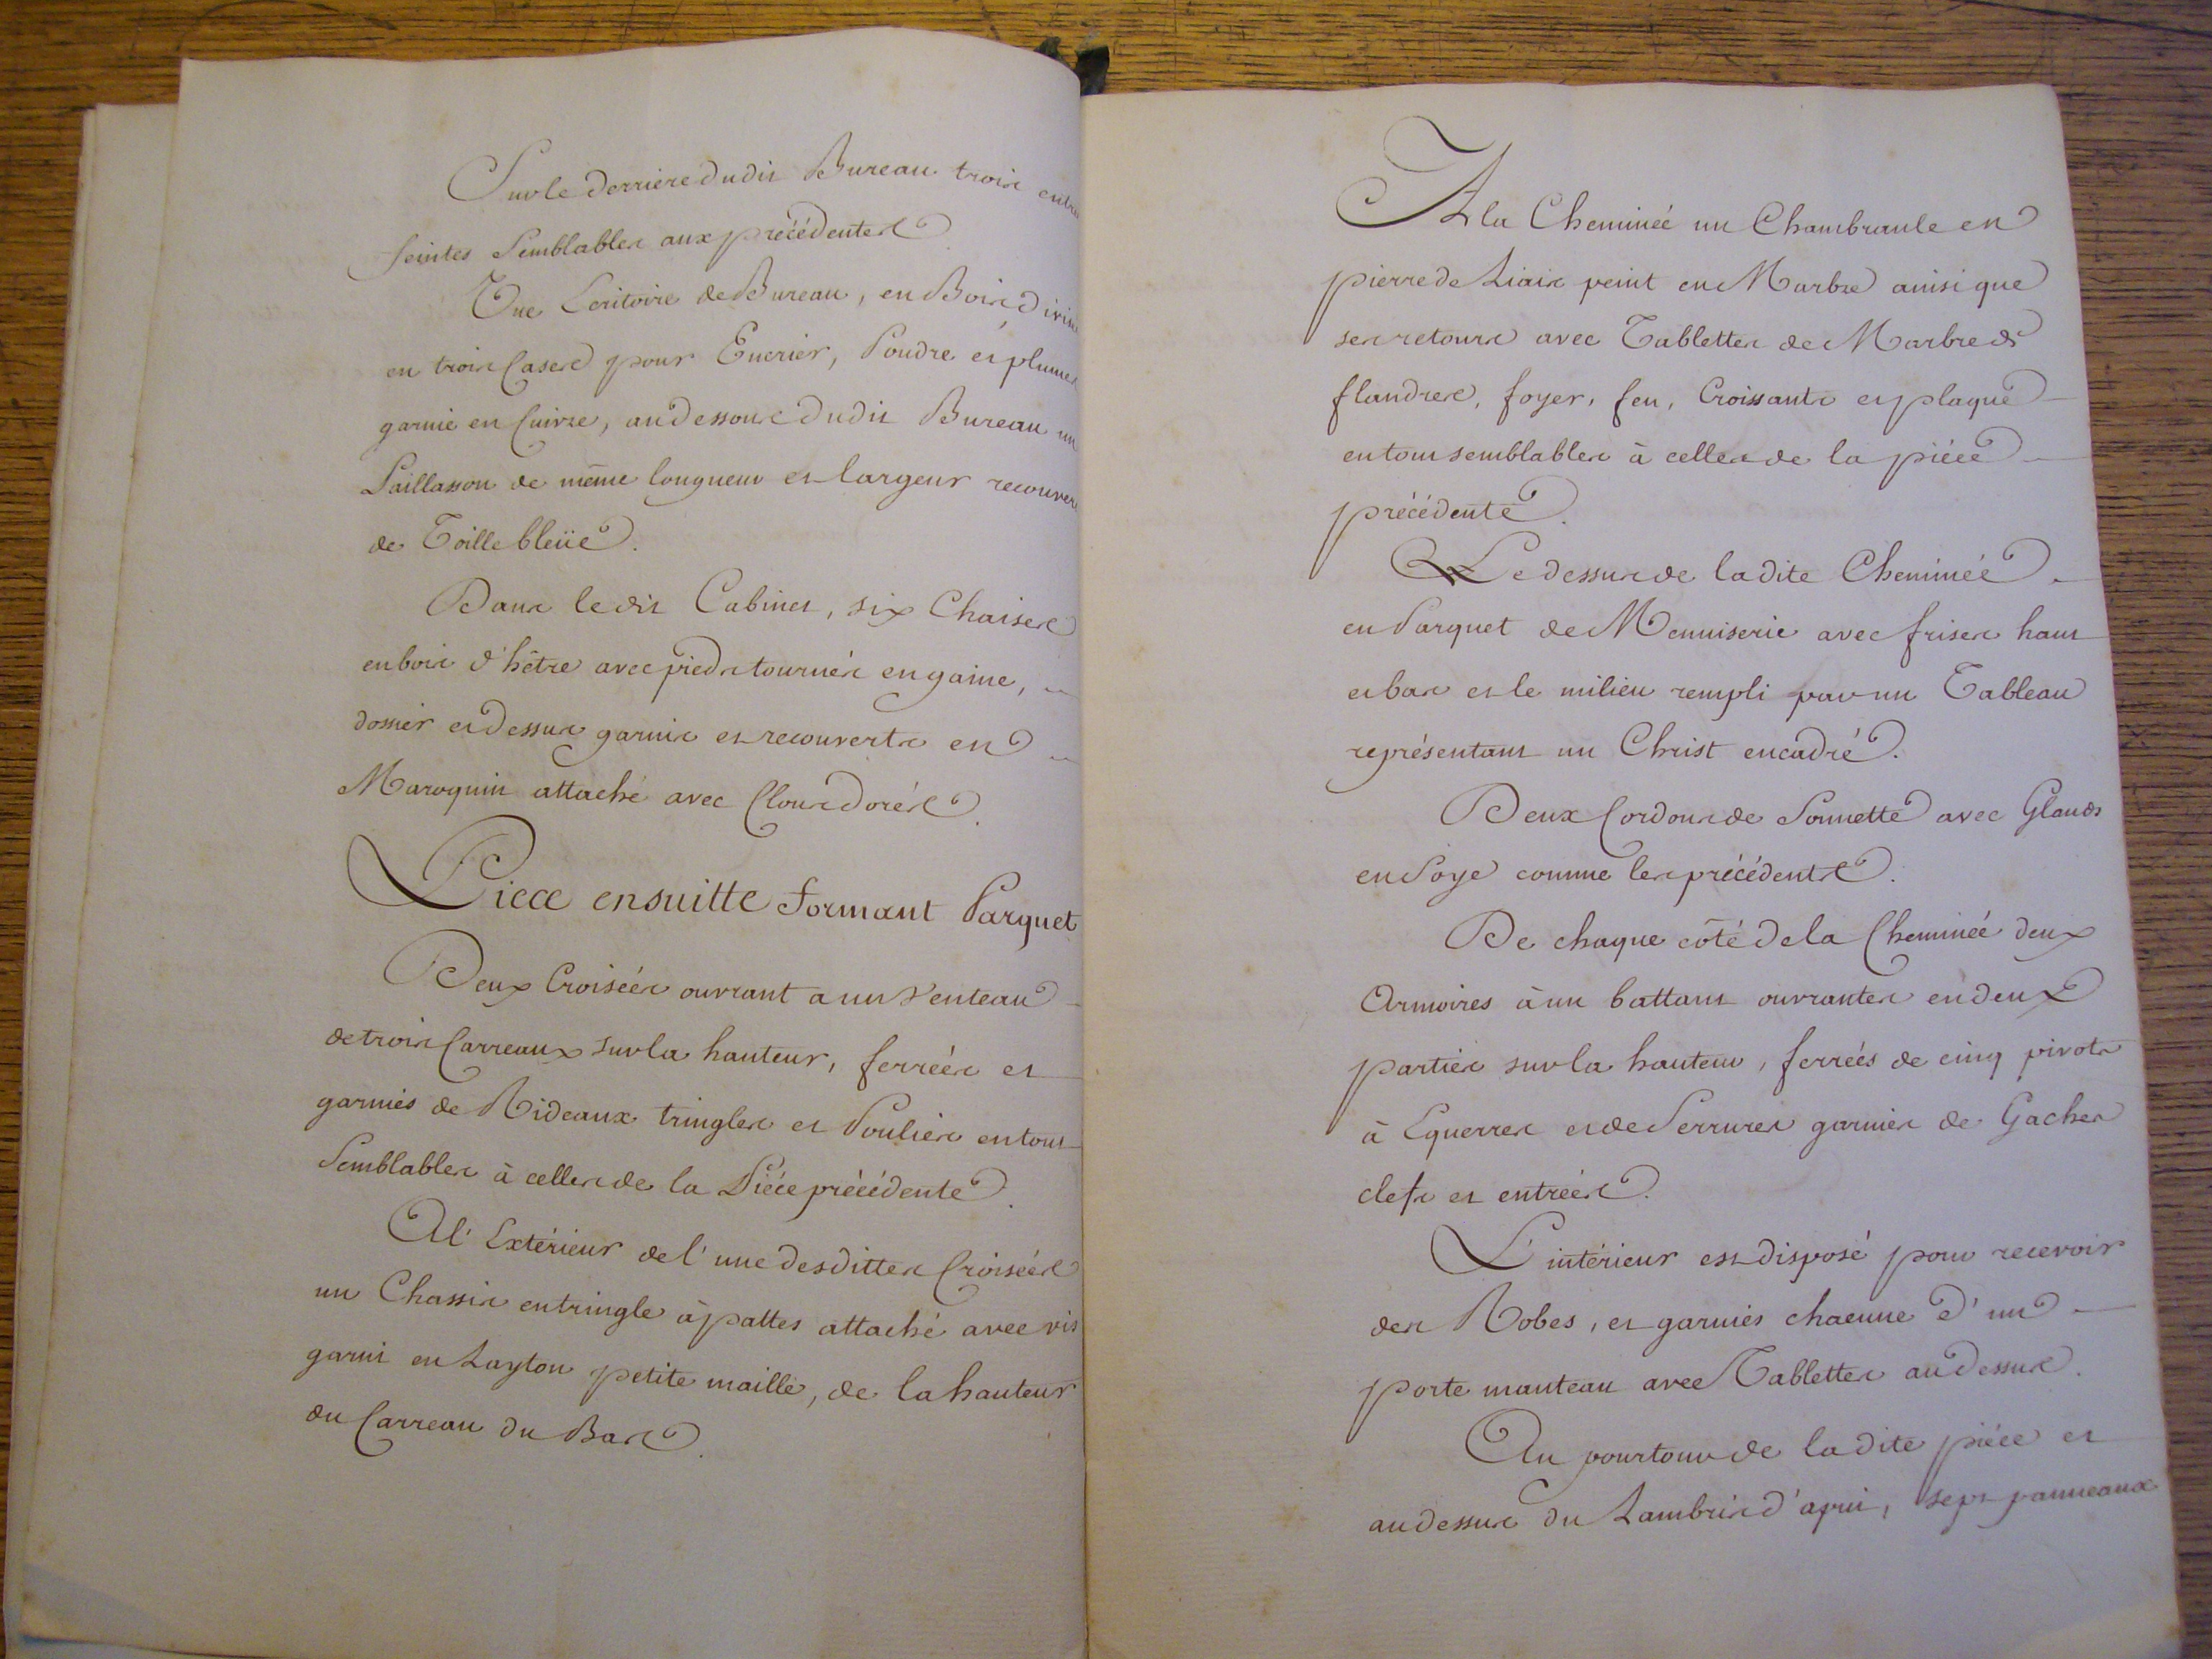 Sur le derriere dudit Bureau trois
feintes Semblables aux précédentes
Une Ecritoire de Bureau, en Bois
en trois Cases pour Encrier, Poudre et plumes
garnie en Cuivre, au dessous dudit Bureau un
Paillasson de même longueur et largeur
de Toille bleüe.
Dans le dit Cabinet, six Chaises
en bois d'hêtre avec pieds tournés en gaine,
dossier et dessus garnis et recouverts en
Maroquin attaché avec Clous dorés.
Piece ensuitte formant Parquet
Deux Croisées ouvrant a un Venteau
de trois Carreaux sur la hauteur, ferrées et
garnies de Rideaux tringles et Poulies en tout
Semblables à celles de la Piéce précédente.
A l'Extérieur de l'une desdittes Croisées
un Chassis en tringle à pattes attaché avec vis
garni en Layton petite maille, de la hauteur
du Carreau du Bas.
A la Cheminée un Chambranle en
pierre de Liais peint en Marbre ainsi que
ses retours avec Tablettes de Marbre de
flandres, foyer, feu, Croissants et plaque
en tout semblables à celles de la piéce
précédente.
Le dessus de ladite Cheminée
en Parquet de Menuiserie avec frises haut
et bas et le milieu rempli par un Tableau
représentant un Christ encadré.
Deux Cordons de Sonnette avec Glands
en Soye comme les précédents.
De chaque côté de la Cheminée deux
Armoires à un battant ouvrantes en deux
parties sur la hauteur, ferrées de cinq pivots
à Equerres et de Serrures garnies de Gaches
clefs et entrées.
L'intérieur est disposé pour recevoir
des Robes, et garnies chacune d'un
porte manteau avec Tablettes au dessus.
Au pourtour de ladite piéce et
au dessus du Lambris d'apui, sept panneaux